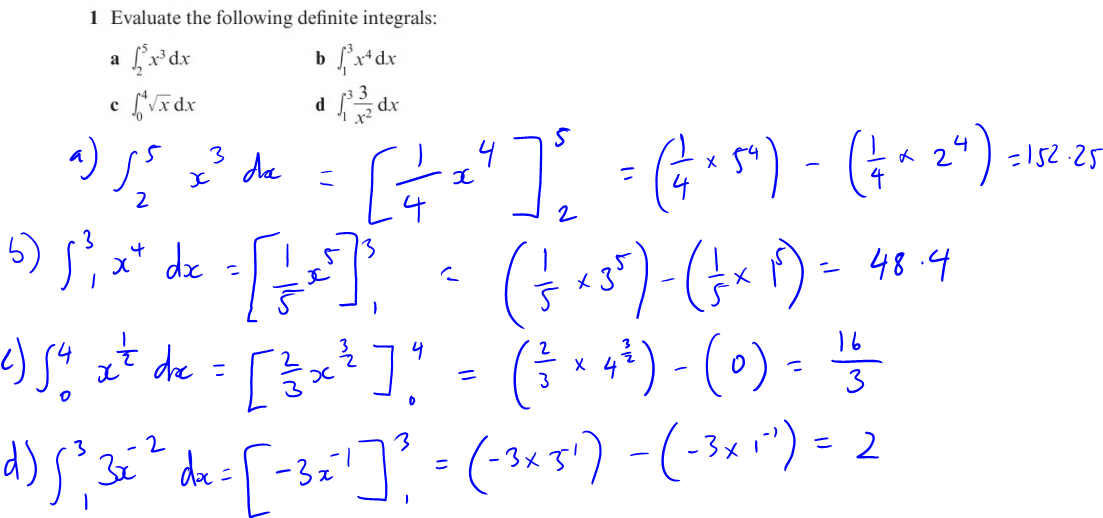 1 Evaluate the following definite integrals:
a ∫₂⁵ x³ dx b ∫₁³ x⁴ dx
c ∫₀⁴ √x dx d ∫₁³ 3/x² dx
a) ∫₂⁵ x³ dx = [1/4 x⁴]₂⁵ = (1/4 × 5⁴) - (1/4 × 2⁴) = 152.25
b) ∫₁³ x⁴ dx = [1/5 x⁵]₁³ = (1/5 × 3⁵) - (1/5 × 1⁵) = 48.4
c) ∫₀⁴ x^(1/2) dx = [2/3 x^(3/2)]₀⁴ = (2/3 × 4^(3/2)) - (0) = 16/3
d) ∫₁³ 3x⁻² dx = [-3x⁻¹]₁³ = (-3 × 3⁻¹) - (-3 × 1⁻¹) = 2